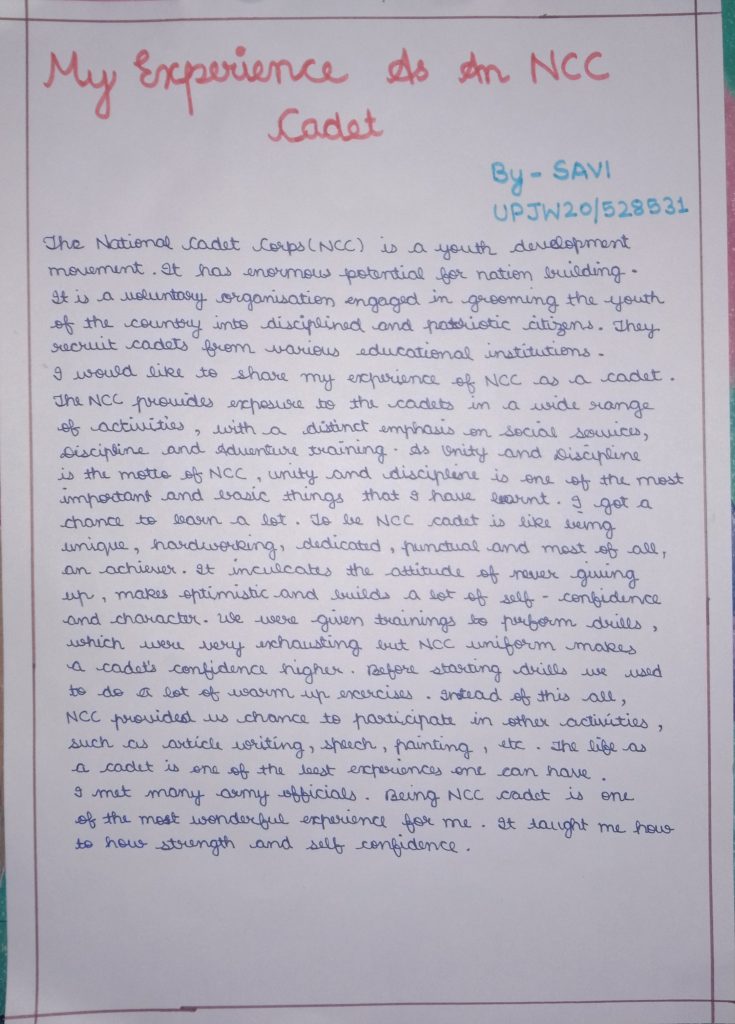 My Experience As An NCC
Cadet
By - SAVI
UPJW20/528531
The National Cadet Corps(NCC) is a youth development
movement. It has enormous potential for nation building.
It is a voluntary organisation engaged in grooming the youth
of the country into disciplined and patriotic citizens. They
recruit cadets from various educational institutions.
I would like to share my experience of NCC as a cadet.
The NCC provides exposure to the cadets in a wide range
of activities, with a distinct emphasis on Social Services,
Discipline and Adventure training. As Unity and Discipline
is the motto of NCC, unity and discipline is one of the most
important and basic things that I have learnt. I got a
chance to learn a lot. To be NCC cadet is like being
unique, hardworking, dedicated, punctual and most of all,
an achiever. It inculcates the attitude of never giving
up, makes optimistic and builds a lot of self-confidence
and character. We were given trainings to perform drills,
which were very exhausting but NCC uniform makes
a cadet's confidence higher. Before starting drills we used
to do a lot of warm up exercises. Instead of this all,
NCC provided us chance to participate in other activities,
such as article writing, speech, painting, etc. The life as
a cadet is one of the best experiences one can have.
I met many army officials. Being NCC cadet is one
of the most wonderful experience for me. It taught me how
to how strength and self confidence.